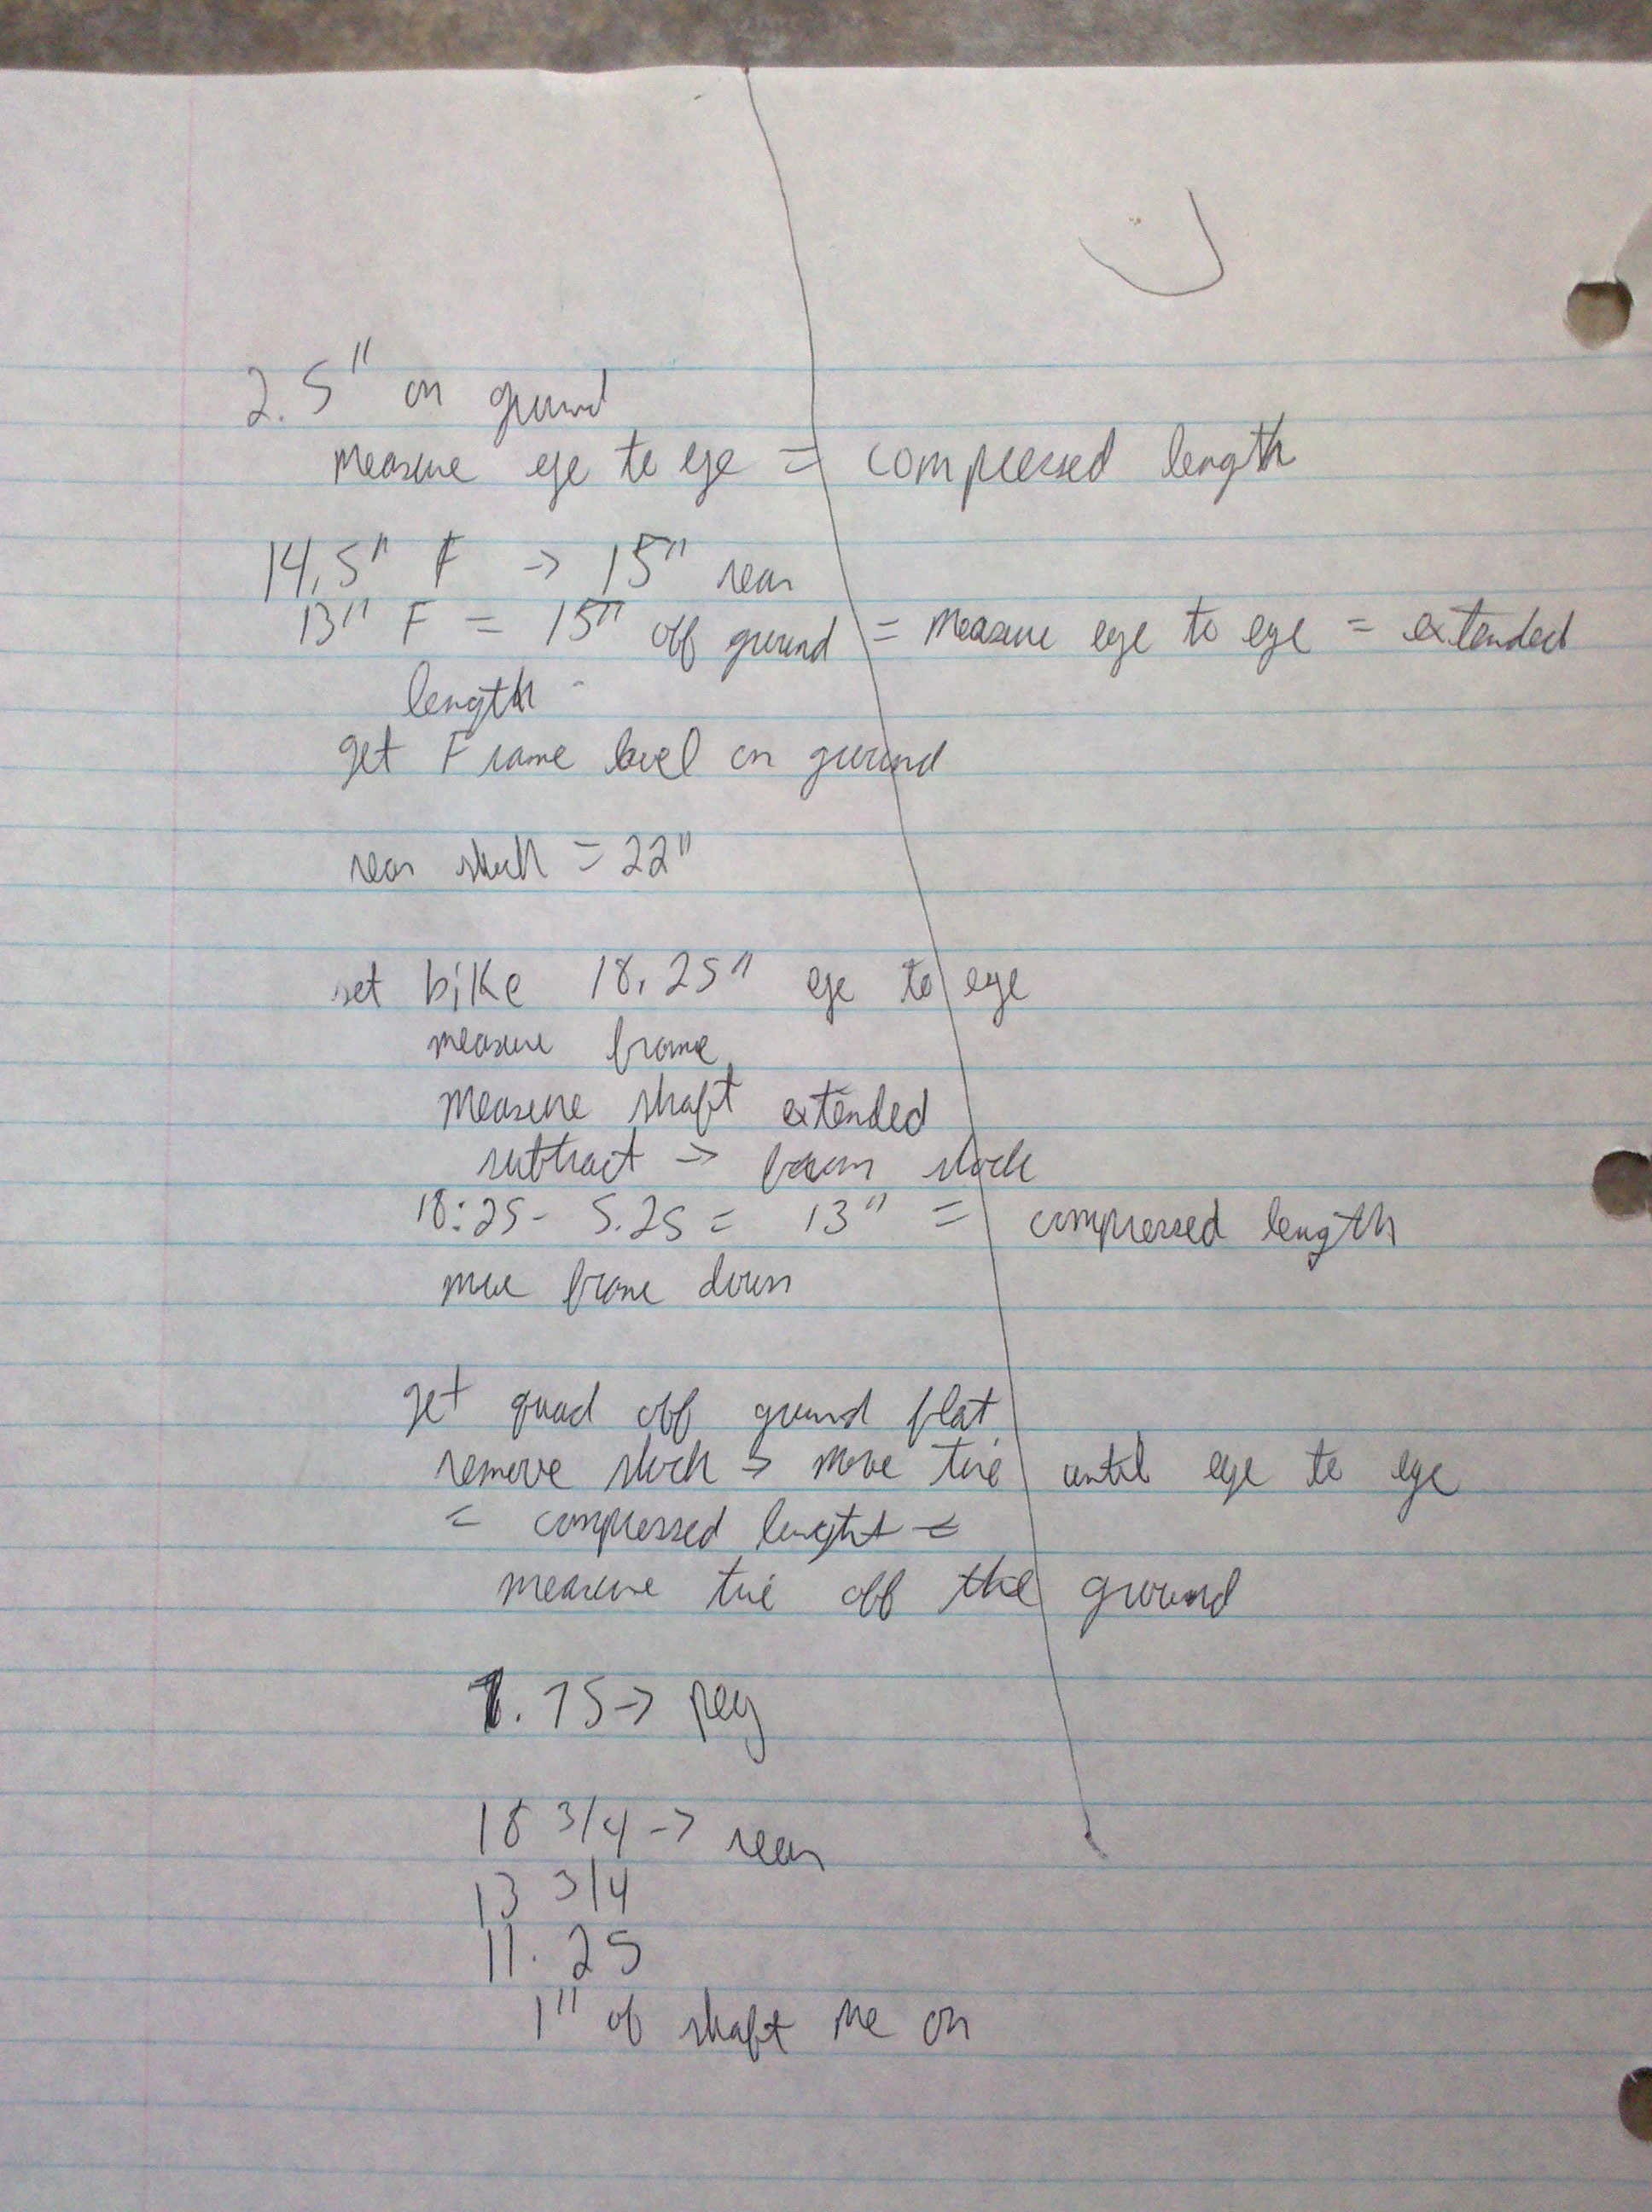 2.5" on ground
measure eye to eye = compressed length
14.5" F -> 15" rear
13" F = 15" off ground = measure eye to eye = extended
length
get Frame level on ground
rear shock = 22"
set bike 18.25" eye to eye
measure frame
measure shaft extended
subtract -> from shock
18.25 - 5.25 = 13" = compressed length
move frame down
get quad off ground flat
remove shock -> move tire until eye to eye
= compressed lenght =
measure tire off the ground
.75 -> peg
18 3/4 -> rear
13 3/4
11.25
1" of shaft me on